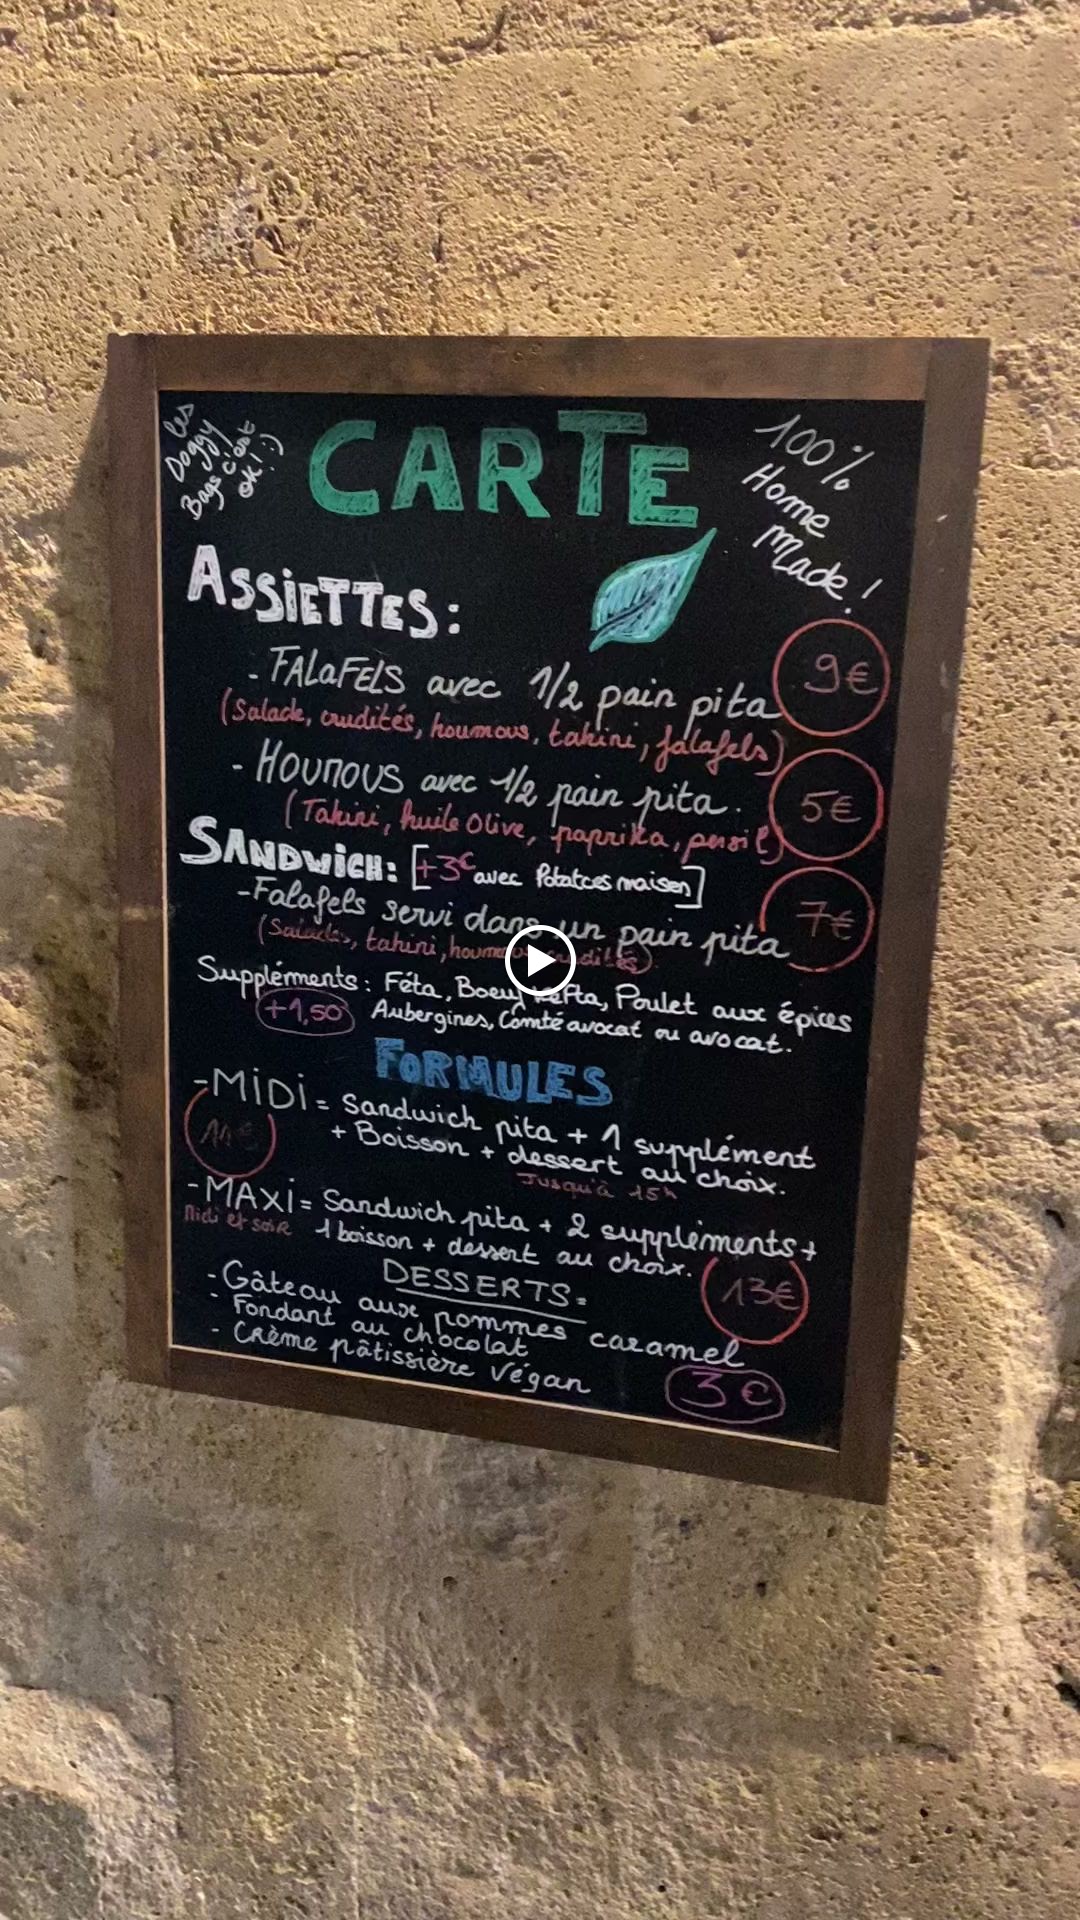 Les
Doggy
Bags c'est
ok! :)
CARTE
100%
Home
Made!
ASSIETTES:
- FALAFELS avec 1/2 pain pita 9€
(Salade, crudités, houmous, tahini, falafels)
- HOUMOUS avec 1/2 pain pita. 5€
(Tahini, huile Olive, paprika, persil)
SANDWICH: [+3€ avec Potatoes maison]
- Falafels servi dans un pain pita 7€
(Salades, tahini, houmous, crudités).
Suppléments: Féta, Boeuf Kefta, Poulet aux épices
+1,50 Aubergines, Comté avocat ou avocat.
FORMULES
- MIDI = Sandwich pita + 1 supplément
11€ + Boisson + dessert au choix.
Jusqu'à 15h
- MAXI = Sandwich pita + 2 suppléments +
Midi et soir 1 boisson + dessert au choix. 13€
DESSERTS =
- Gâteau aux pommes caramel
- Fondant au chocolat
- Crème pâtissière Végan 3€